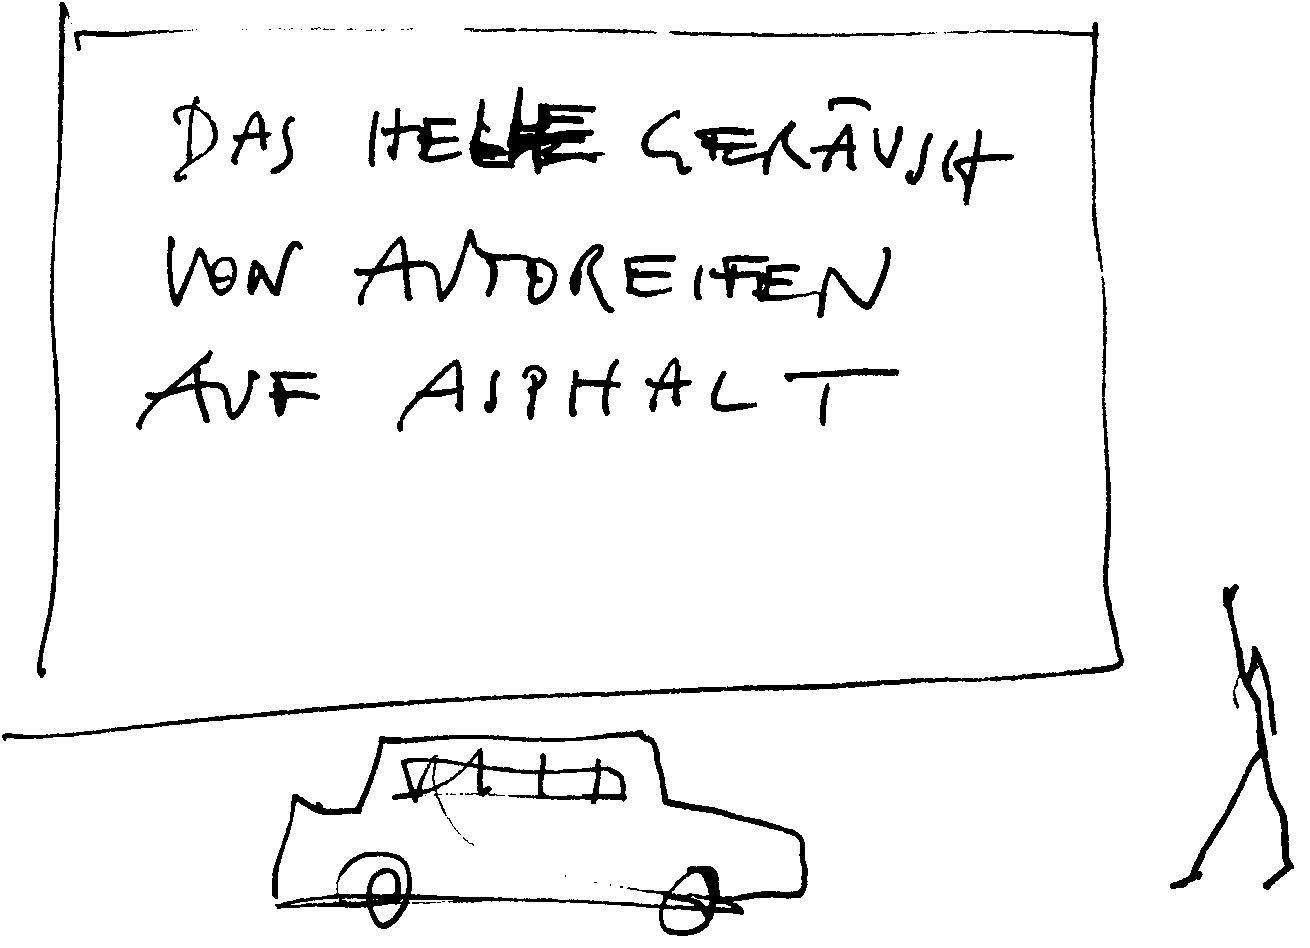 DAS HELLE GERÄUSCH
VON AUTOREIFEN
AUF ASPHALT